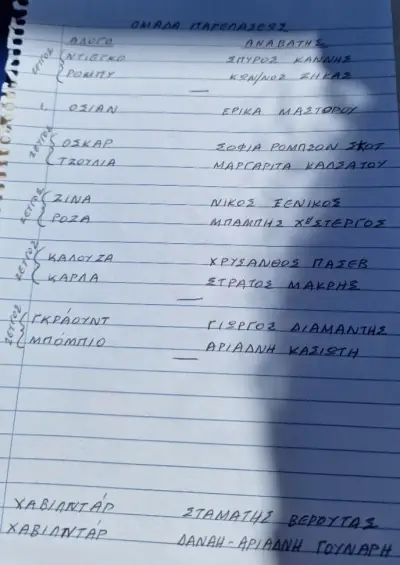 ΟΜΑΔΑ ΠΑΡΕΛΑΣΕΩΣ
ΑΛΟΓΟ ΑΝΑΒΑΤΗΣ
ΖΕΥΓΟΣ ΝΤΙΕΓΚΟ ΣΠΥΡΟΣ ΚΑΝΝΗΣ
ΡΟΜΠΥ ΚΩΝ/ΝΟΣ ΖΗΚΑΣ
1. ΟΣΙΑΝ ΕΡΙΚΑ ΜΑΣΤΟΡΟΥ
ΖΕΥΓΟΣ ΟΣΚΑΡ ΣΟΦΙΑ ΡΟΜΠΣΟΝ ΣΚΟΤ
ΤΖΟΥΛΙΑ ΜΑΡΓΑΡΙΤΑ ΚΑΛΣΑΤΟΥ
ΖΕΥΓΟΣ ΖΙΝΑ ΝΙΚΟΣ ΞΕΝΙΚΟΣ
ΡΟΖΑ ΜΠΑΜΠΗΣ ΣΤΕΡΓΟΣ
ΖΕΥΓΟΣ ΚΑΛΟΥΖΑ ΧΡΥΣΑΝΘΟΣ ΠΑΣΕΒ
ΚΑΡΛΑ ΣΤΡΑΤΟΣ ΜΑΚΡΗΣ
ΖΕΥΓΟΣ ΓΚΡΑΟΥΝΤ ΓΙΩΡΓΟΣ ΔΙΑΜΑΝΤΗΣ
ΜΠΟΜΠΙΟ ΑΡΙΑΔΝΗ ΚΑΣΙΩΤΗ
ΧΑΒΙΛΝΤΑΡ ΣΤΑΜΑΤΗΣ ΒΕΡΟΥΤΑΣ
ΧΑΒΙΛΝΤΑΡ ΔΑΝΑΗ-ΑΡΙΑΔΝΗ ΓΟΥΝΑΡΗ